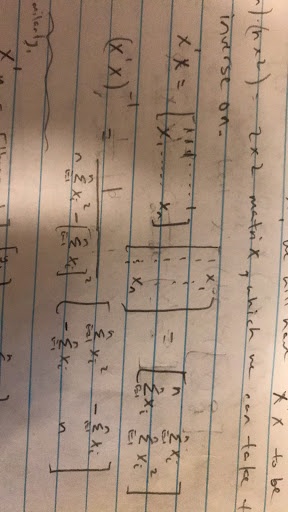 we will have X'X to be
(n×2) = 2×2 matrix, which we can take
inverse on.
X'X = [1 1 1 ... 1; x₁ ... xₙ] [1 x₁; ⋮ ⋮; 1 xₙ] = [n Σᵢ₌₁ⁿ xᵢ; Σᵢ₌₁ⁿ xᵢ Σᵢ₌₁ⁿ xᵢ²]
(X'X)⁻¹ = 1 / (n Σᵢ₌₁ⁿ xᵢ² − [Σᵢ₌₁ⁿ xᵢ]²) [Σᵢ₌₁ⁿ xᵢ² −Σᵢ₌₁ⁿ xᵢ; −Σᵢ₌₁ⁿ xᵢ n]
milarly,